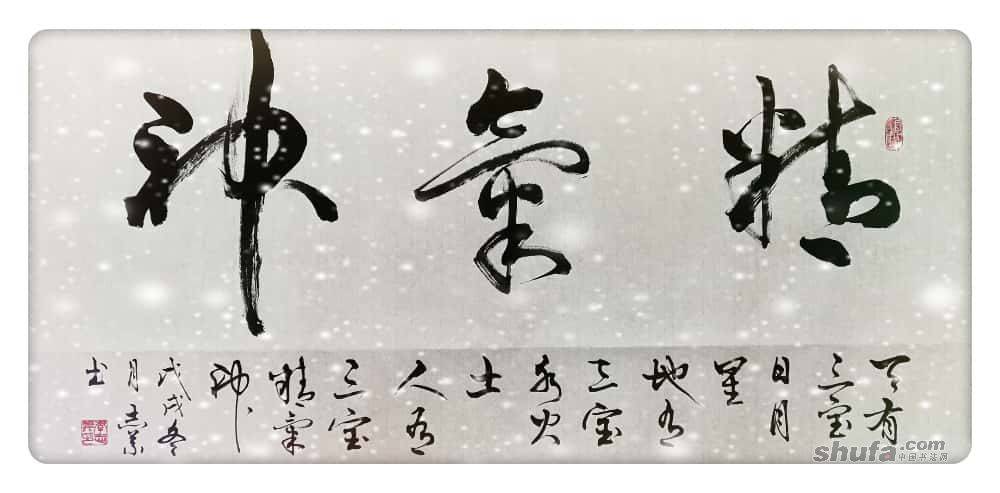 精氣神
天有
三宝
日月
星
地有
三宝
水火
土
人有
三宝
精氣
神
戊戌冬
月
书
shufa.com
中国书法网